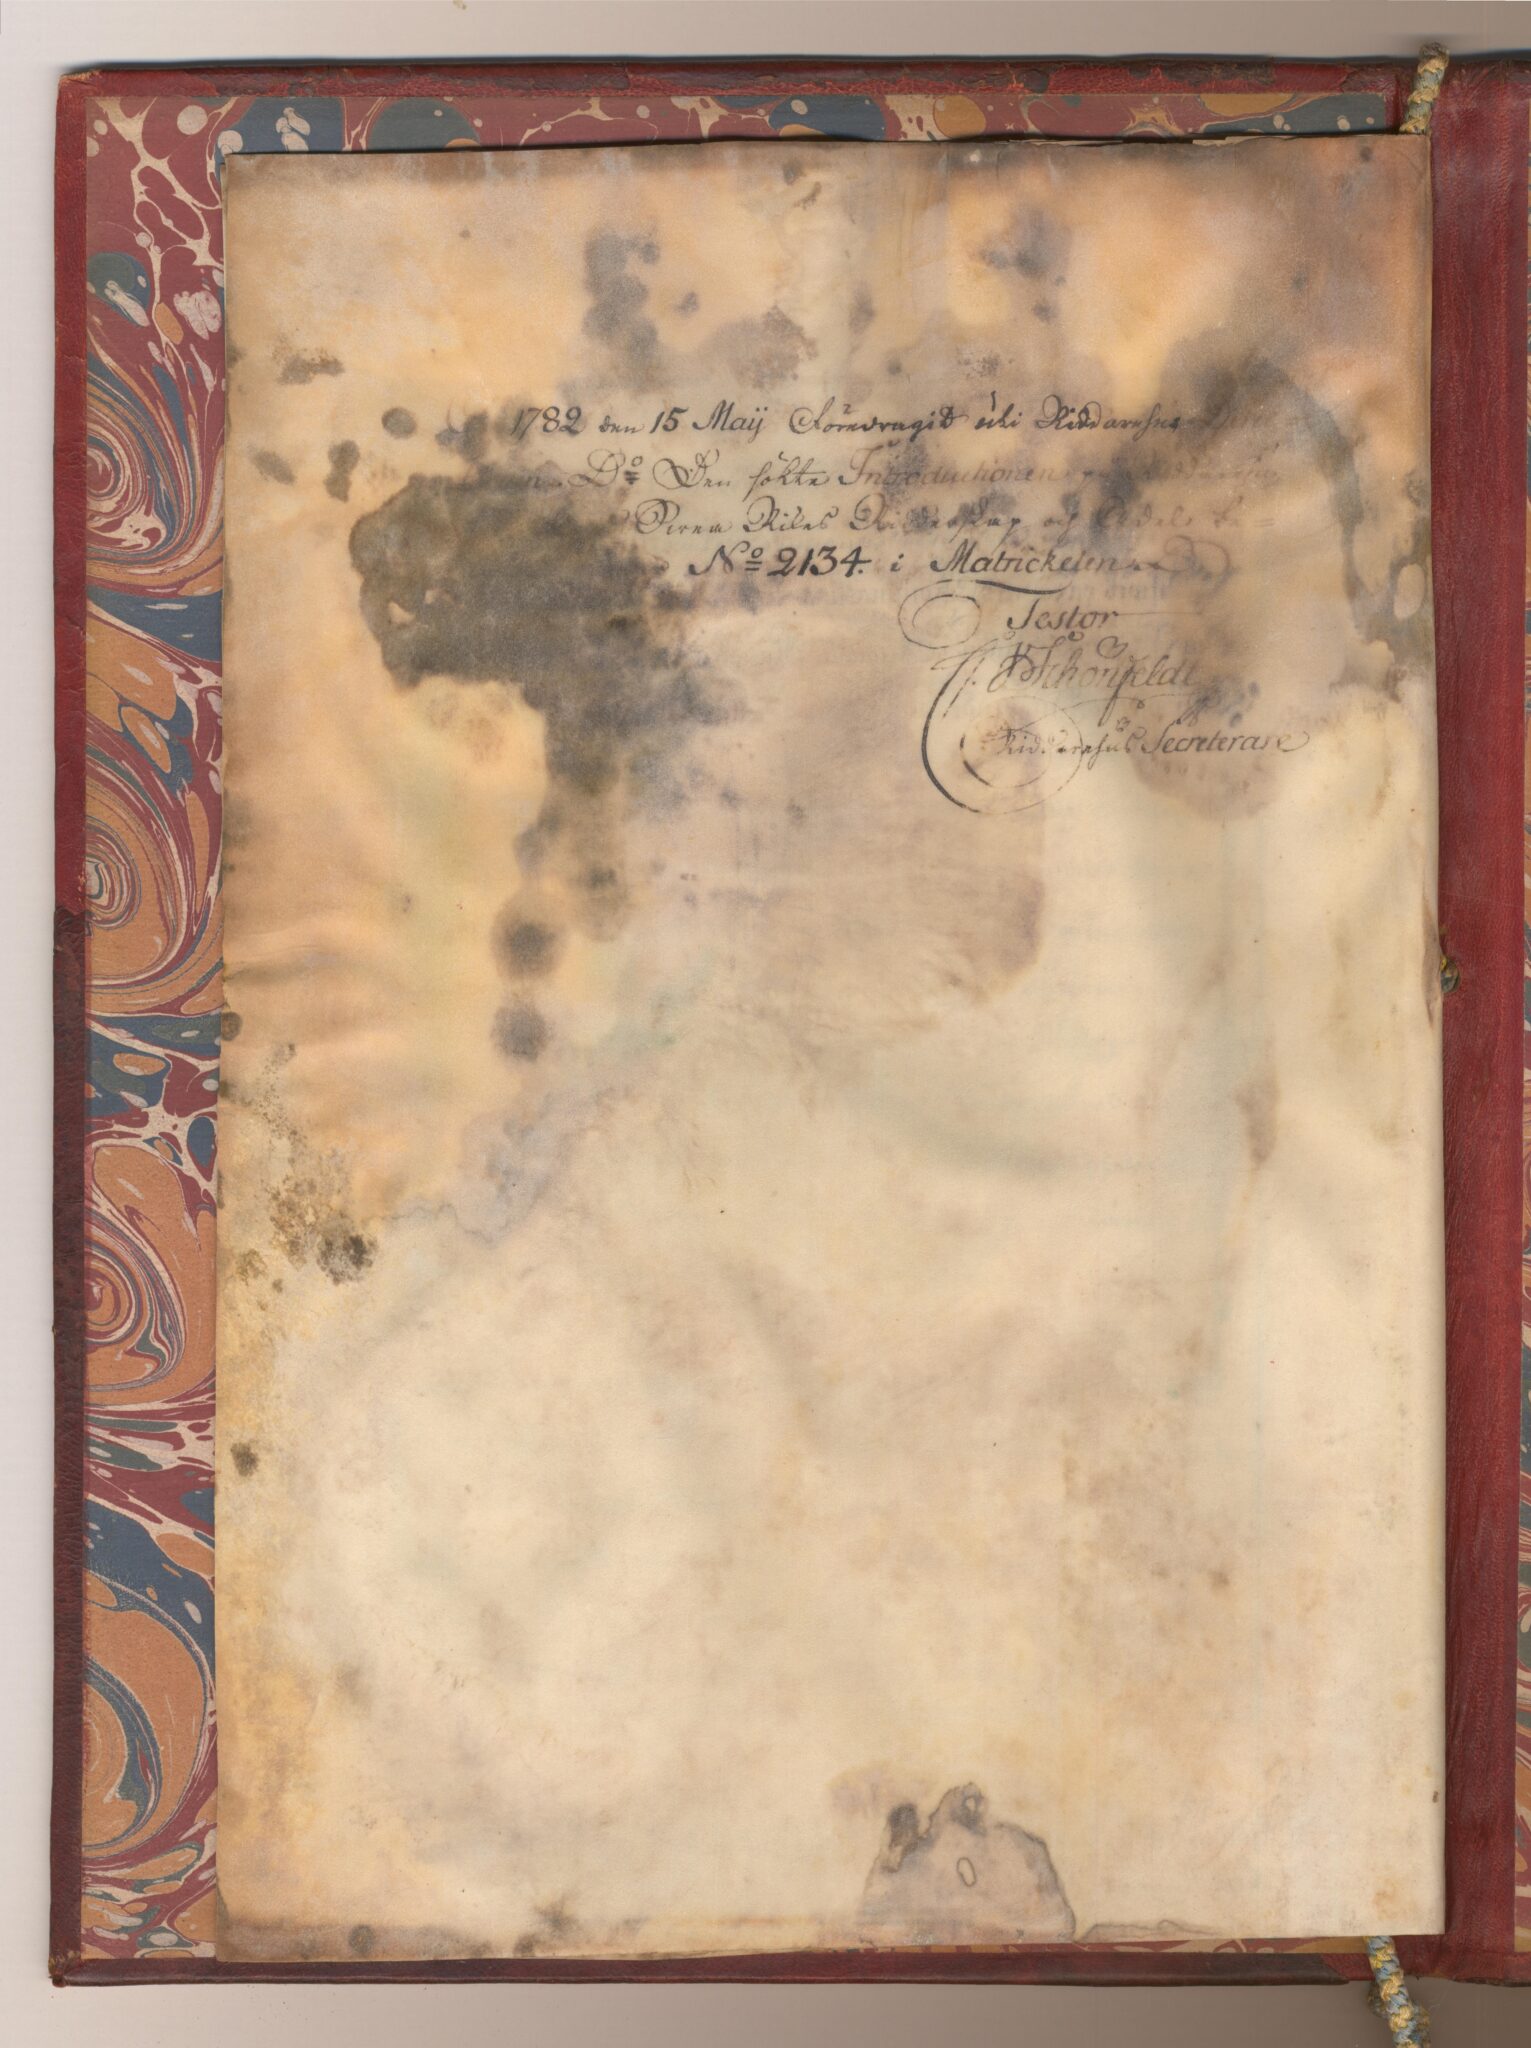 1782 den 15 Maij Föredragit uti Riddarehus
Do Den sökte Introductionen
Svea Rikes Ridderskap och Adel
No 2134. i Matrickelen
Testor
Schönfeldt
Riddarehus Secreterare